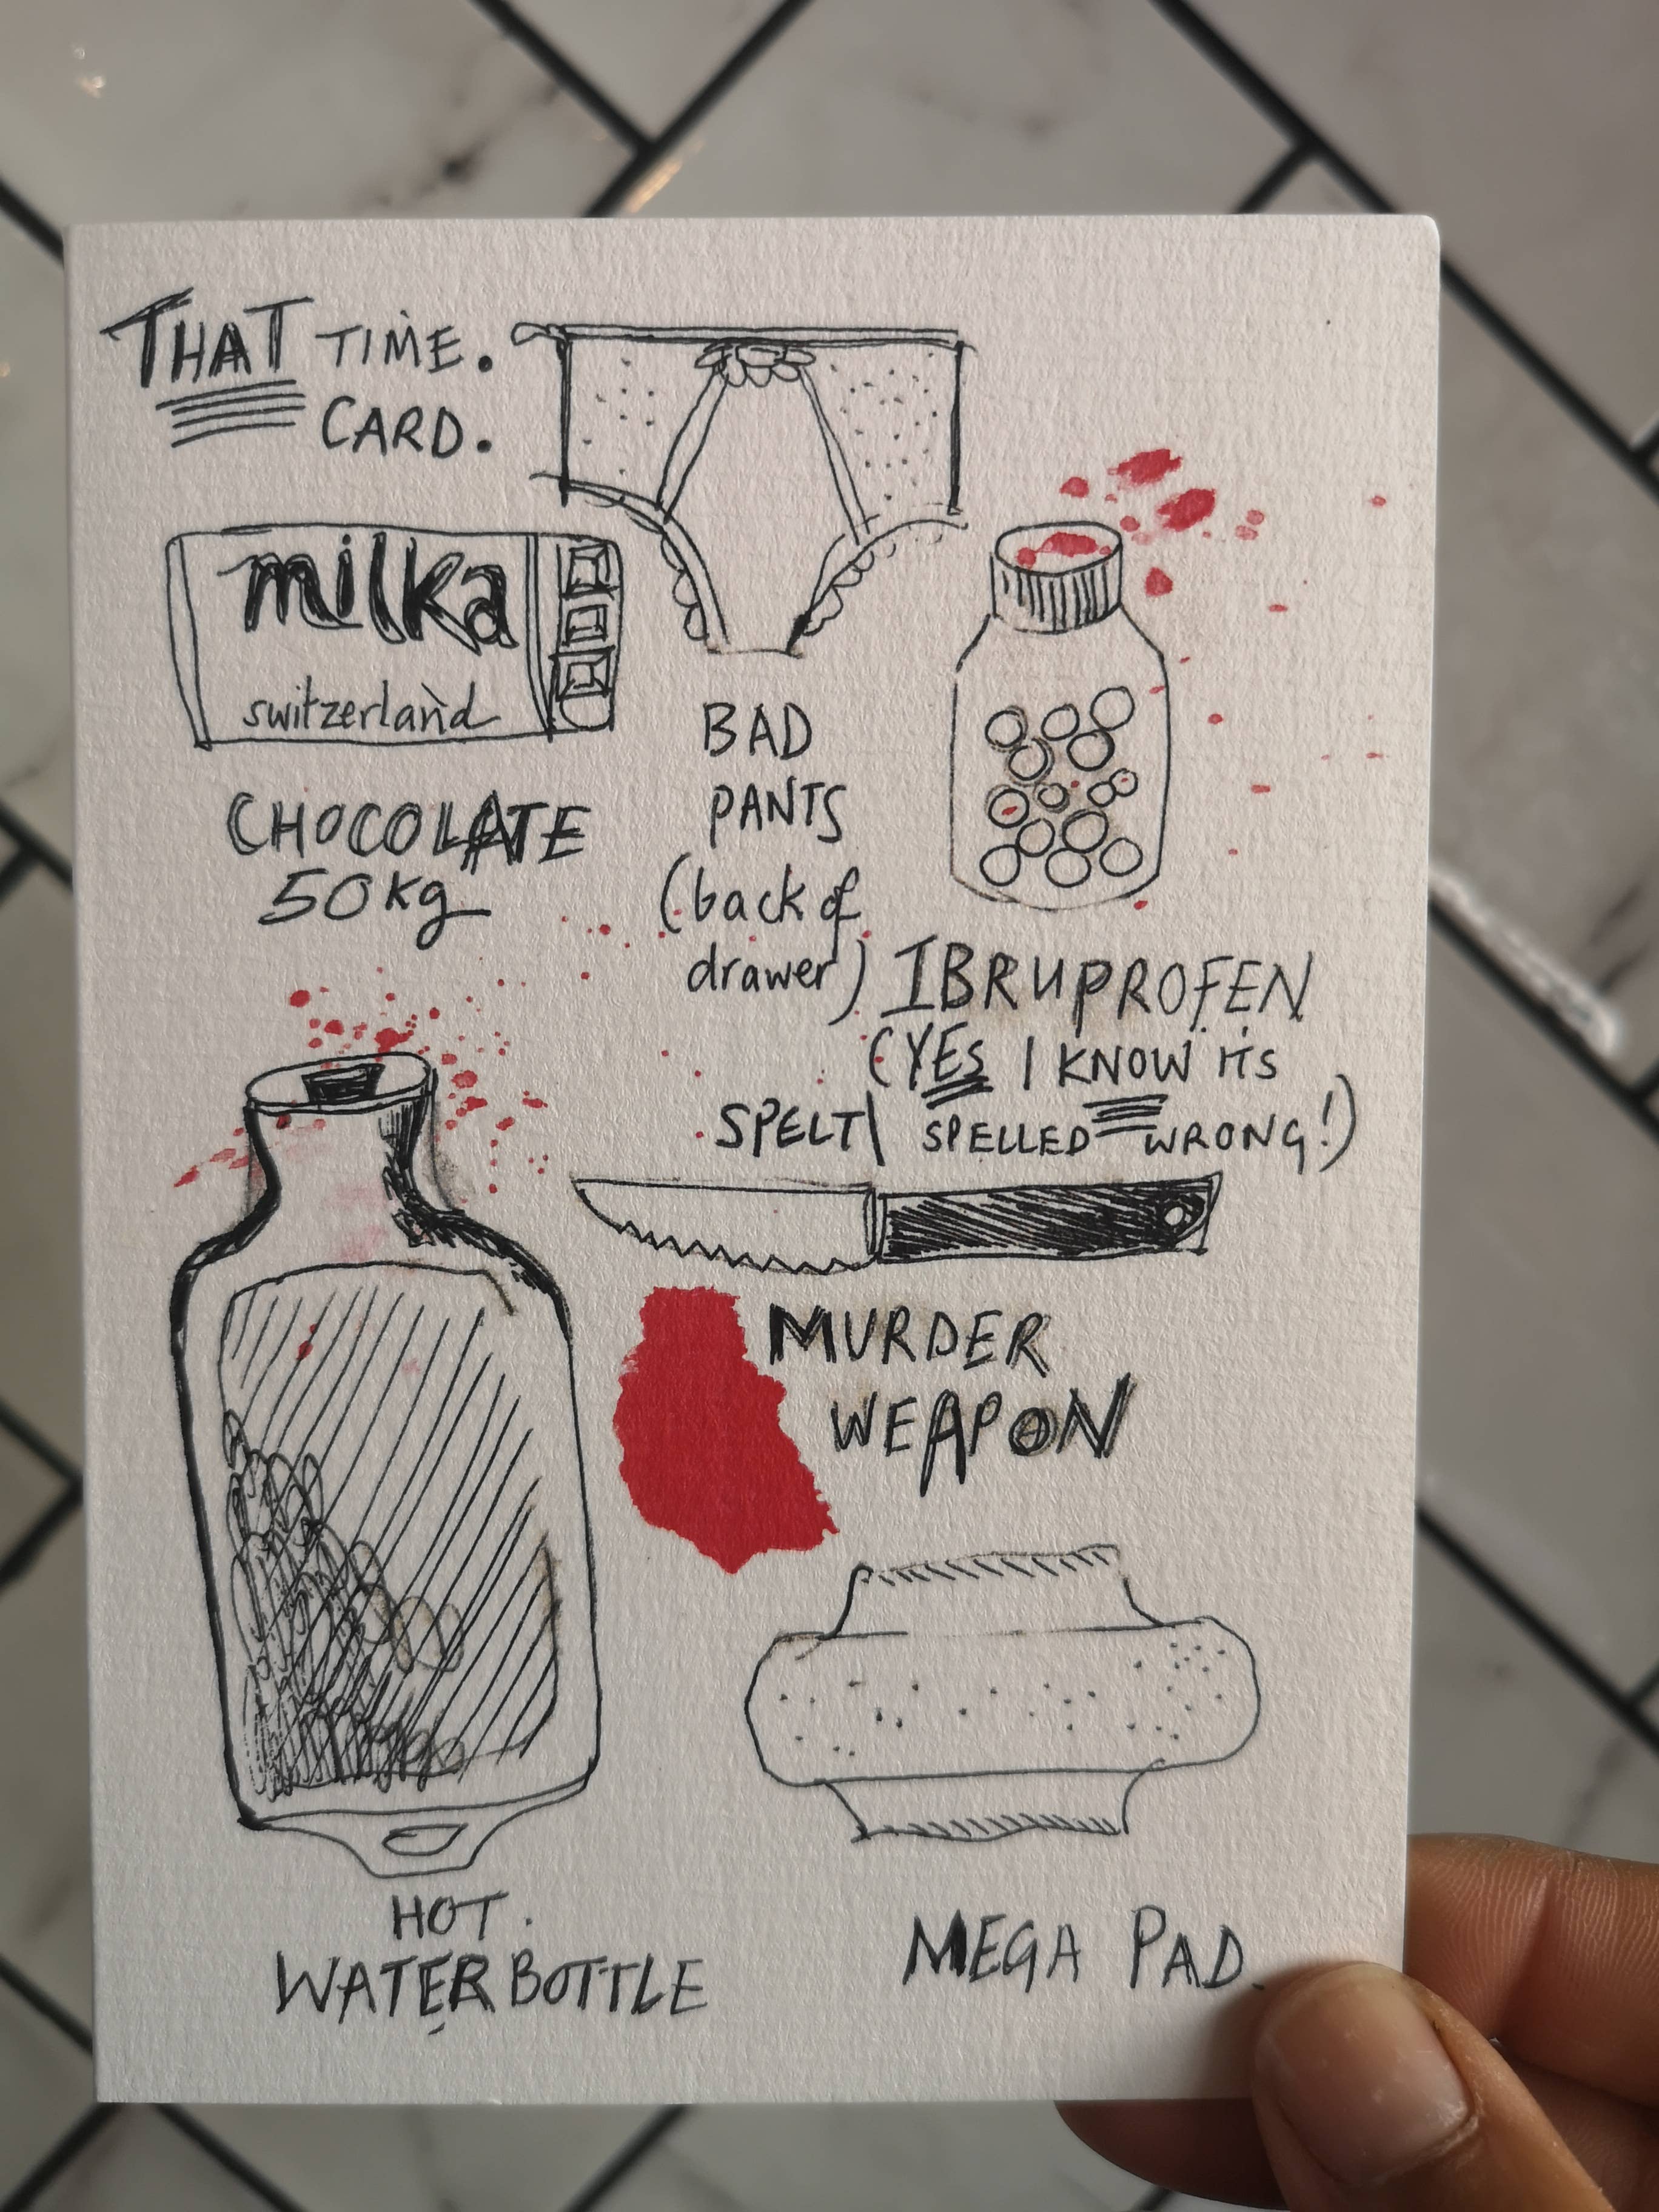 THAT TIME.
CARD.
milka
switzerland
CHOCOLATE
50kg
BAD
PANTS
(back of
drawer)
IBRUPROFEN
(YES I KNOW ITS
SPELT\ SPELLED WRONG!)
MURDER
WEAPON
HOT.
WATER BOTTLE
MEGA PAD.